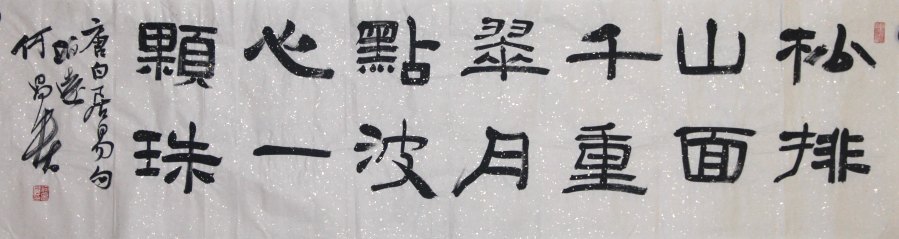 松排
山面
千重
翠月
點波
心一
顆珠
唐白居易句
何昌贵